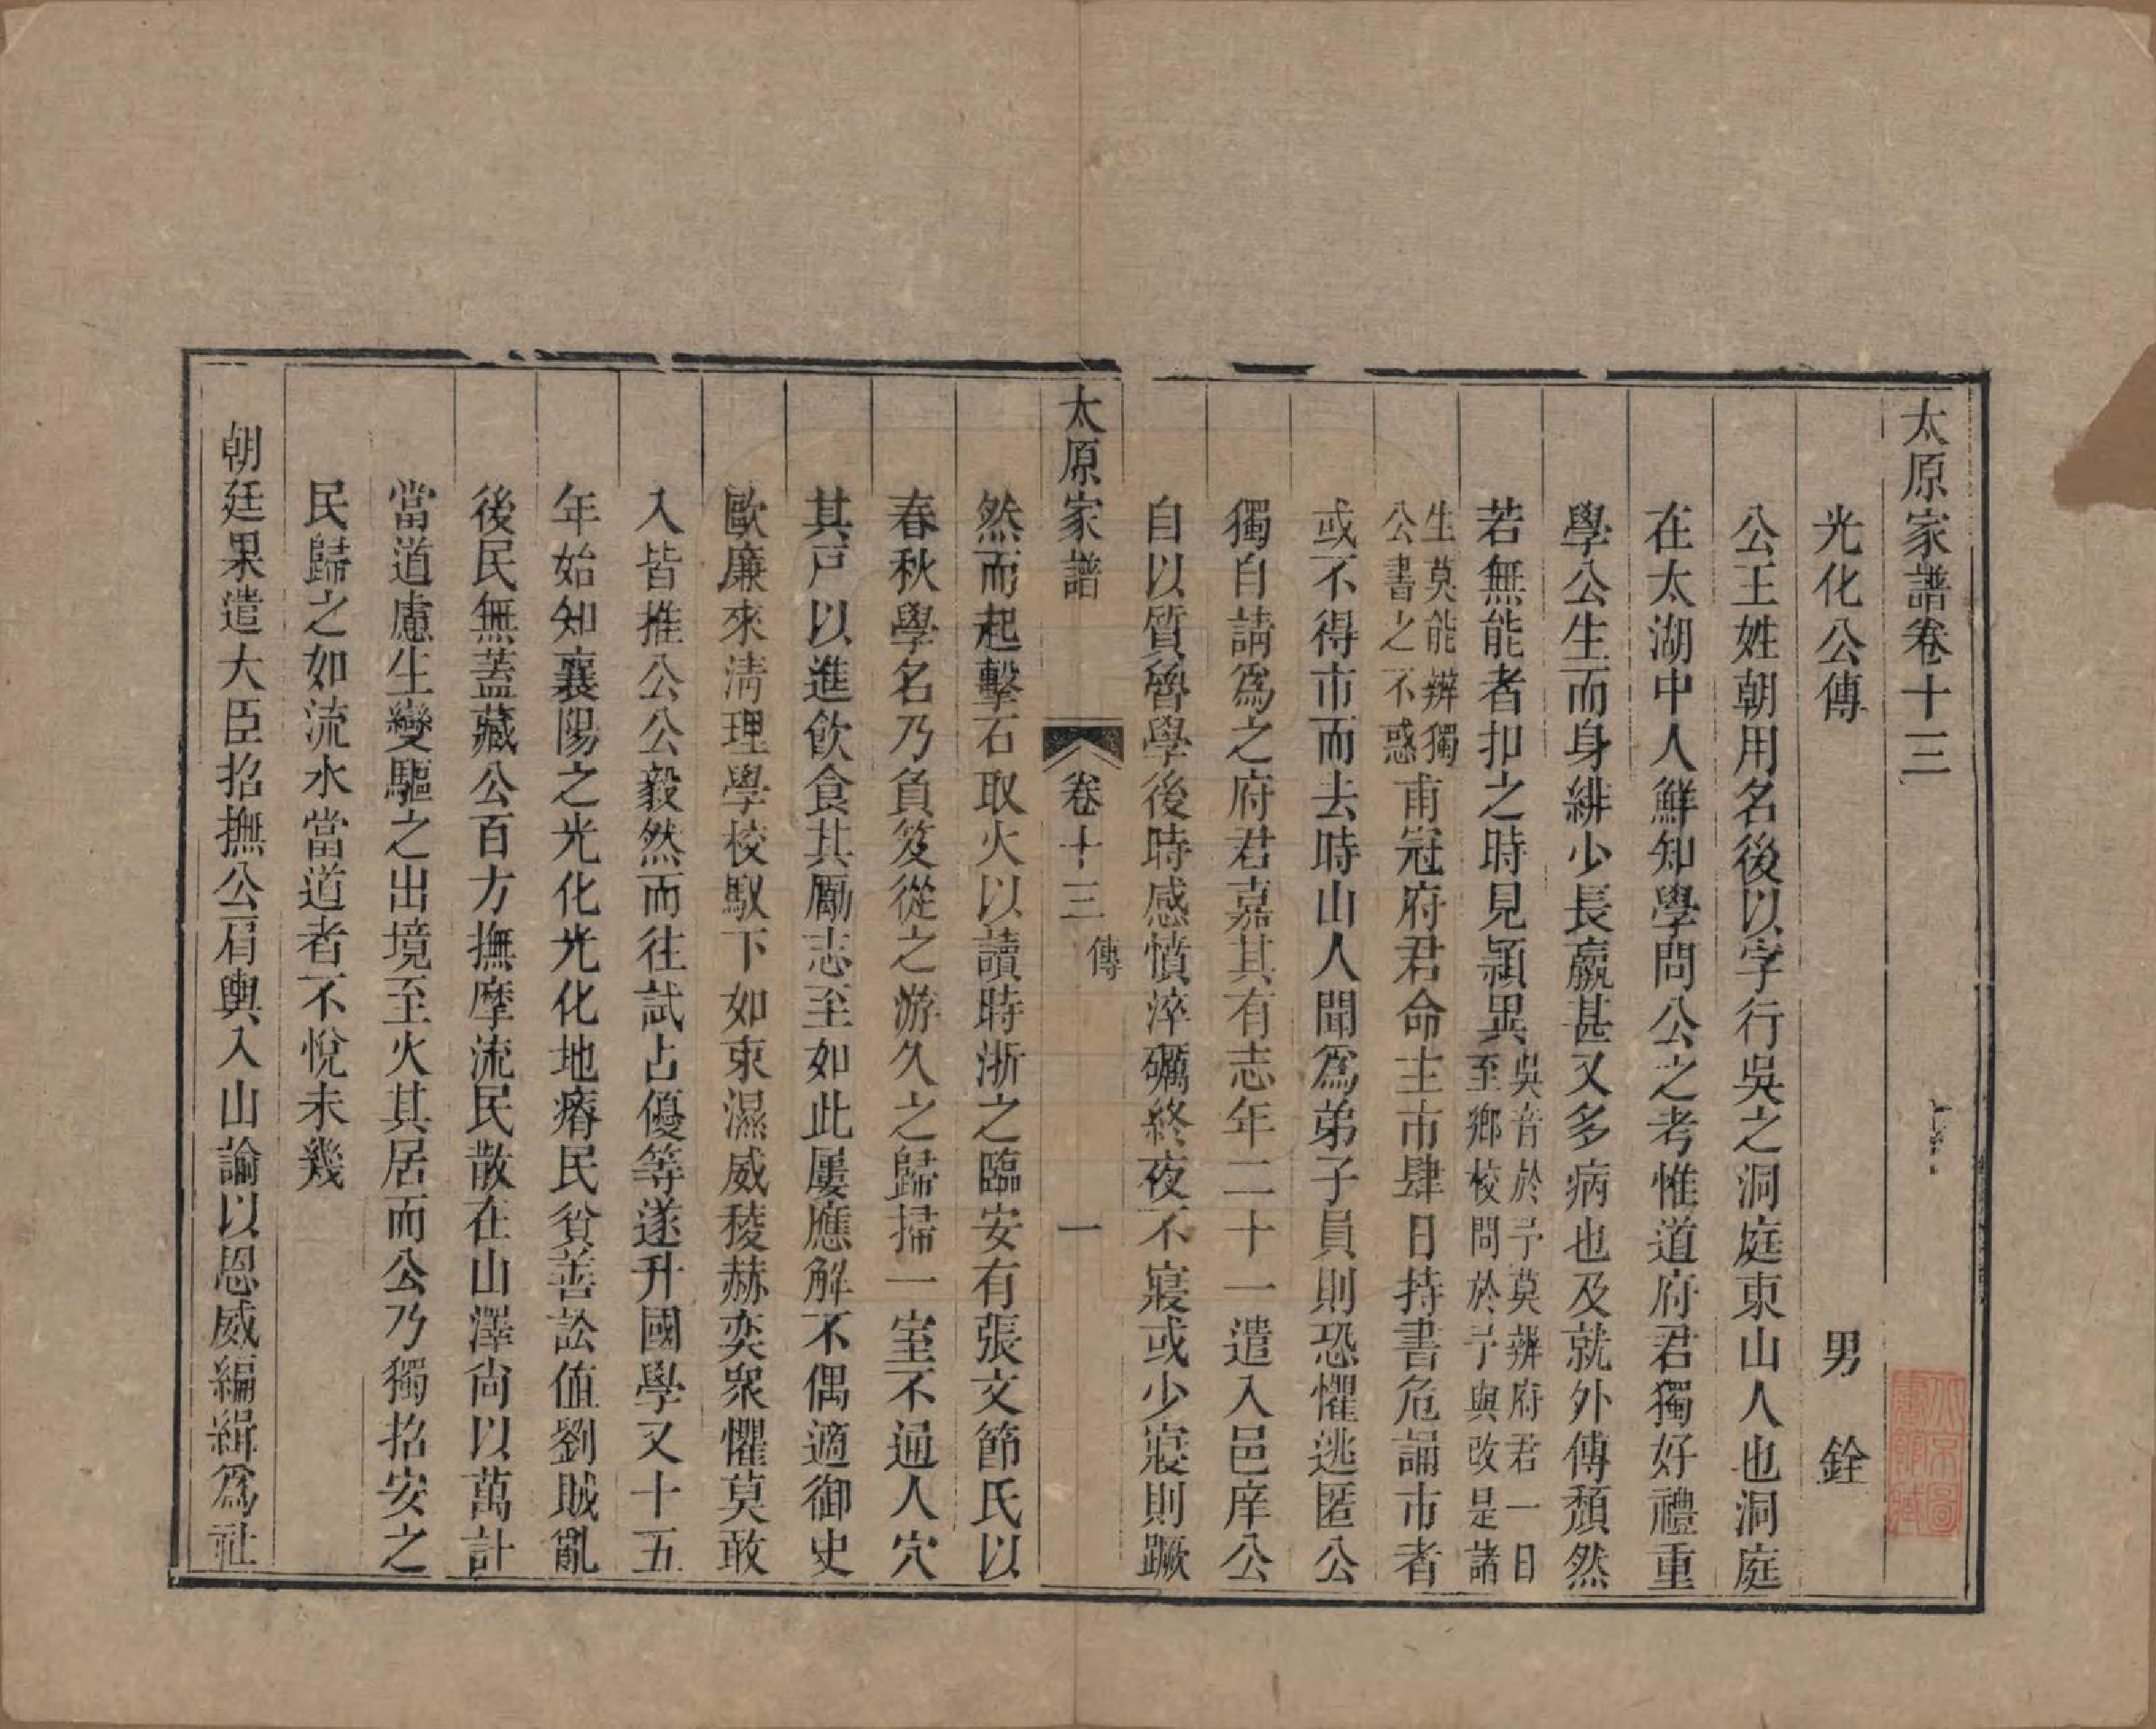 太原家譜卷十三
光化公傳　男　銓
公王姓朝用名後以字行吳之洞庭東山人也洞庭
在太湖中人鮮知學問公之考惟道府君獨好禮重
學公生而身緋少長羸甚又多病也及就外傅頹然
若無能者扣之時見穎異吳音於予莫辨府君一日至鄉校問於予與改是諸
生莫能辨獨公書之不惑甫冠府君命主市肆日持書危誦市者
或不得市而去時山人聞爲弟子員則恐懼逃匿公
獨自請爲之府君嘉其有志年二十一遣入邑庠公
自以質魯學後時感憤淬礪終夜不寢或少寢則蹶
太原家譜　卷十三　傳　一
然而起擊石取火以讀時浙之臨安有張文節氏以
春秋學名乃負笈從之游久之歸掃一室不通人穴
其戸以進飲食其勵志至如此屢應解不偶適御史
歐廉來清理學校馭下如束濕威稜赫奕衆懼莫敢
入皆推公公毅然而往試占優等遂升國學又十五
年始知襄陽之光化光化地瘠民貧善訟值劉賊亂
後民無蓋藏公百方撫摩流民散在山澤尚以萬計
當道慮生變驅之出境至火其居而公乃獨招安之
民歸之如流水當道者不悅未幾
朝廷果遣大臣招撫公肩輿入山諭以恩威編緝爲社